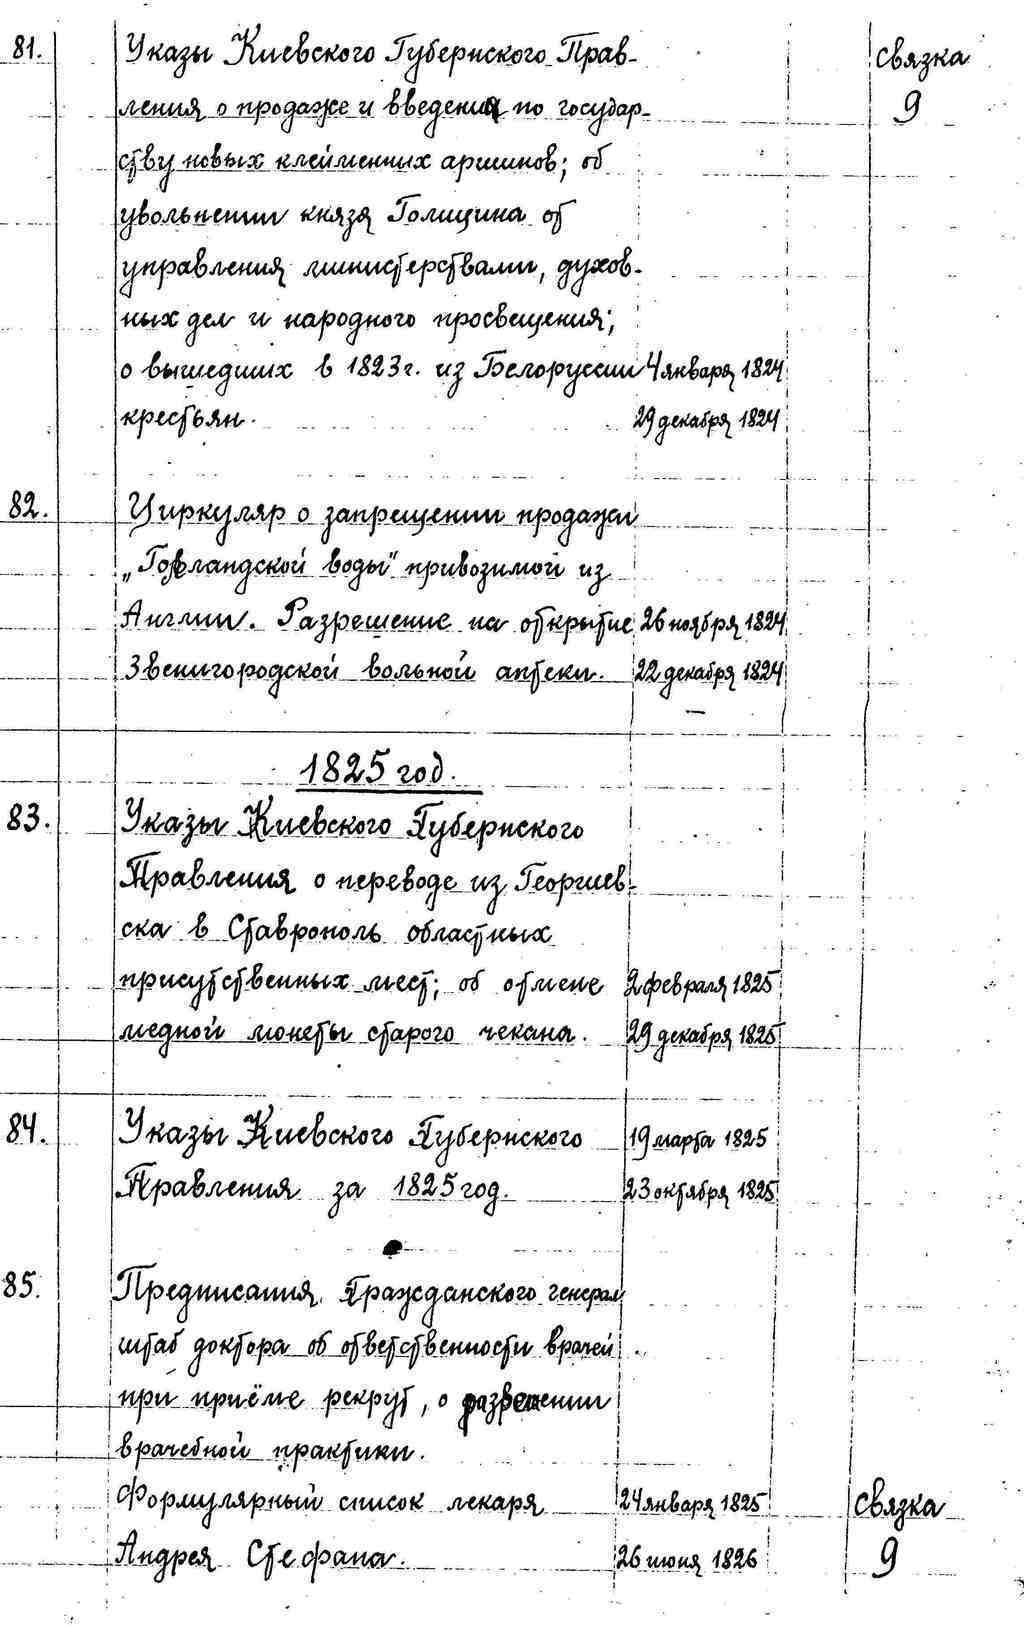 81. Указы Киевского Губернского Прав- связка
ления о продаже и введения по государ- 9
ству новых клейменных аршинов; об
увольнении князя Голицина от
управления министерствами, духов-
ных дел и народного просвещения;
о вышедших в 1823 г. из Белоруссии 4 января 1824
крестьян. 29 декабря 1824
82. Циркуляр о запрещении продажи
„Гофландской воды" привозимой из
Англии. Разрешение на открытие 26 ноября 1824
Звенигородской вольной аптеки. 22 декабря 1824
1825 год.
83. Указы Киевского Губернского
Правления о переводе из Георгиев-
ска в Ставрополь областных
присутственных мест; об отмене 2 февраля 1825
медной монеты старого чекана. 29 декабря 1825
84. Указы Киевского Губернского 19 марта 1825
Правления за 1825 год. 23 октября 1825
85. Предписания Гражданского генерал
штаб доктора об ответственности врачей
при приёме рекрут, о разрешении
врачебной практики.
Формулярный список лекаря 24 января 1825 связка
Андрея Стефана. 26 июня 1826 9